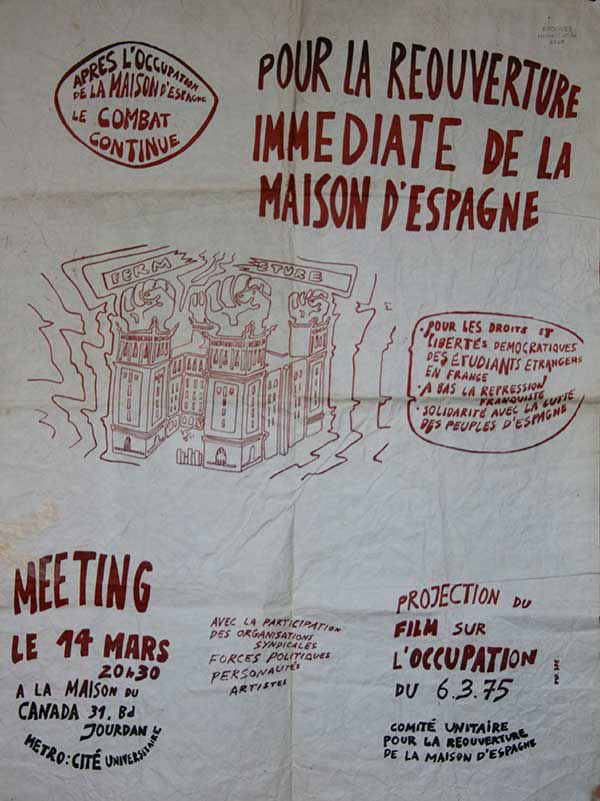 APRÈS L'OCCUPATION
DE LA MAISON D'ESPAGNE
LE COMBAT
CONTINUE
POUR LA REOUVERTURE
IMMEDIATE DE LA
MAISON D'ESPAGNE
FERM ETURE
• POUR LES DROITS ET
LIBERTÉS DEMOCRATIQUES
DES ETUDIANTS ETRANGERS
EN FRANCE
• A BAS LA REPRESSION
FRANQUISTE
• SOLIDARITÉ AVEC LA LUTTE
DES PEUPLES D'ESPAGNE
MEETING
LE 14 MARS
20H30
A LA MAISON DU
CANADA 31, Bd
JOURDAN
METRO: CITÉ UNIVERSITAIRE
AVEC LA PARTICIPATION
DES ORGANISATIONS
SYNDICALES
FORCES POLITIQUES
PERSONALITÉS
ARTISTES
PROJECTION DU
FILM SUR
L'OCCUPATION
DU 6.3.75
COMITÉ UNITAIRE
POUR LA REOUVERTURE
DE LA MAISON D'ESPAGNE